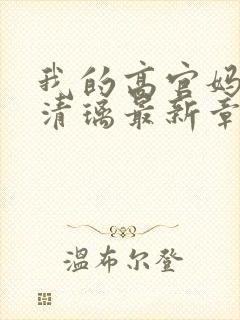 我的高官妈
清璃最新章
温布尔登